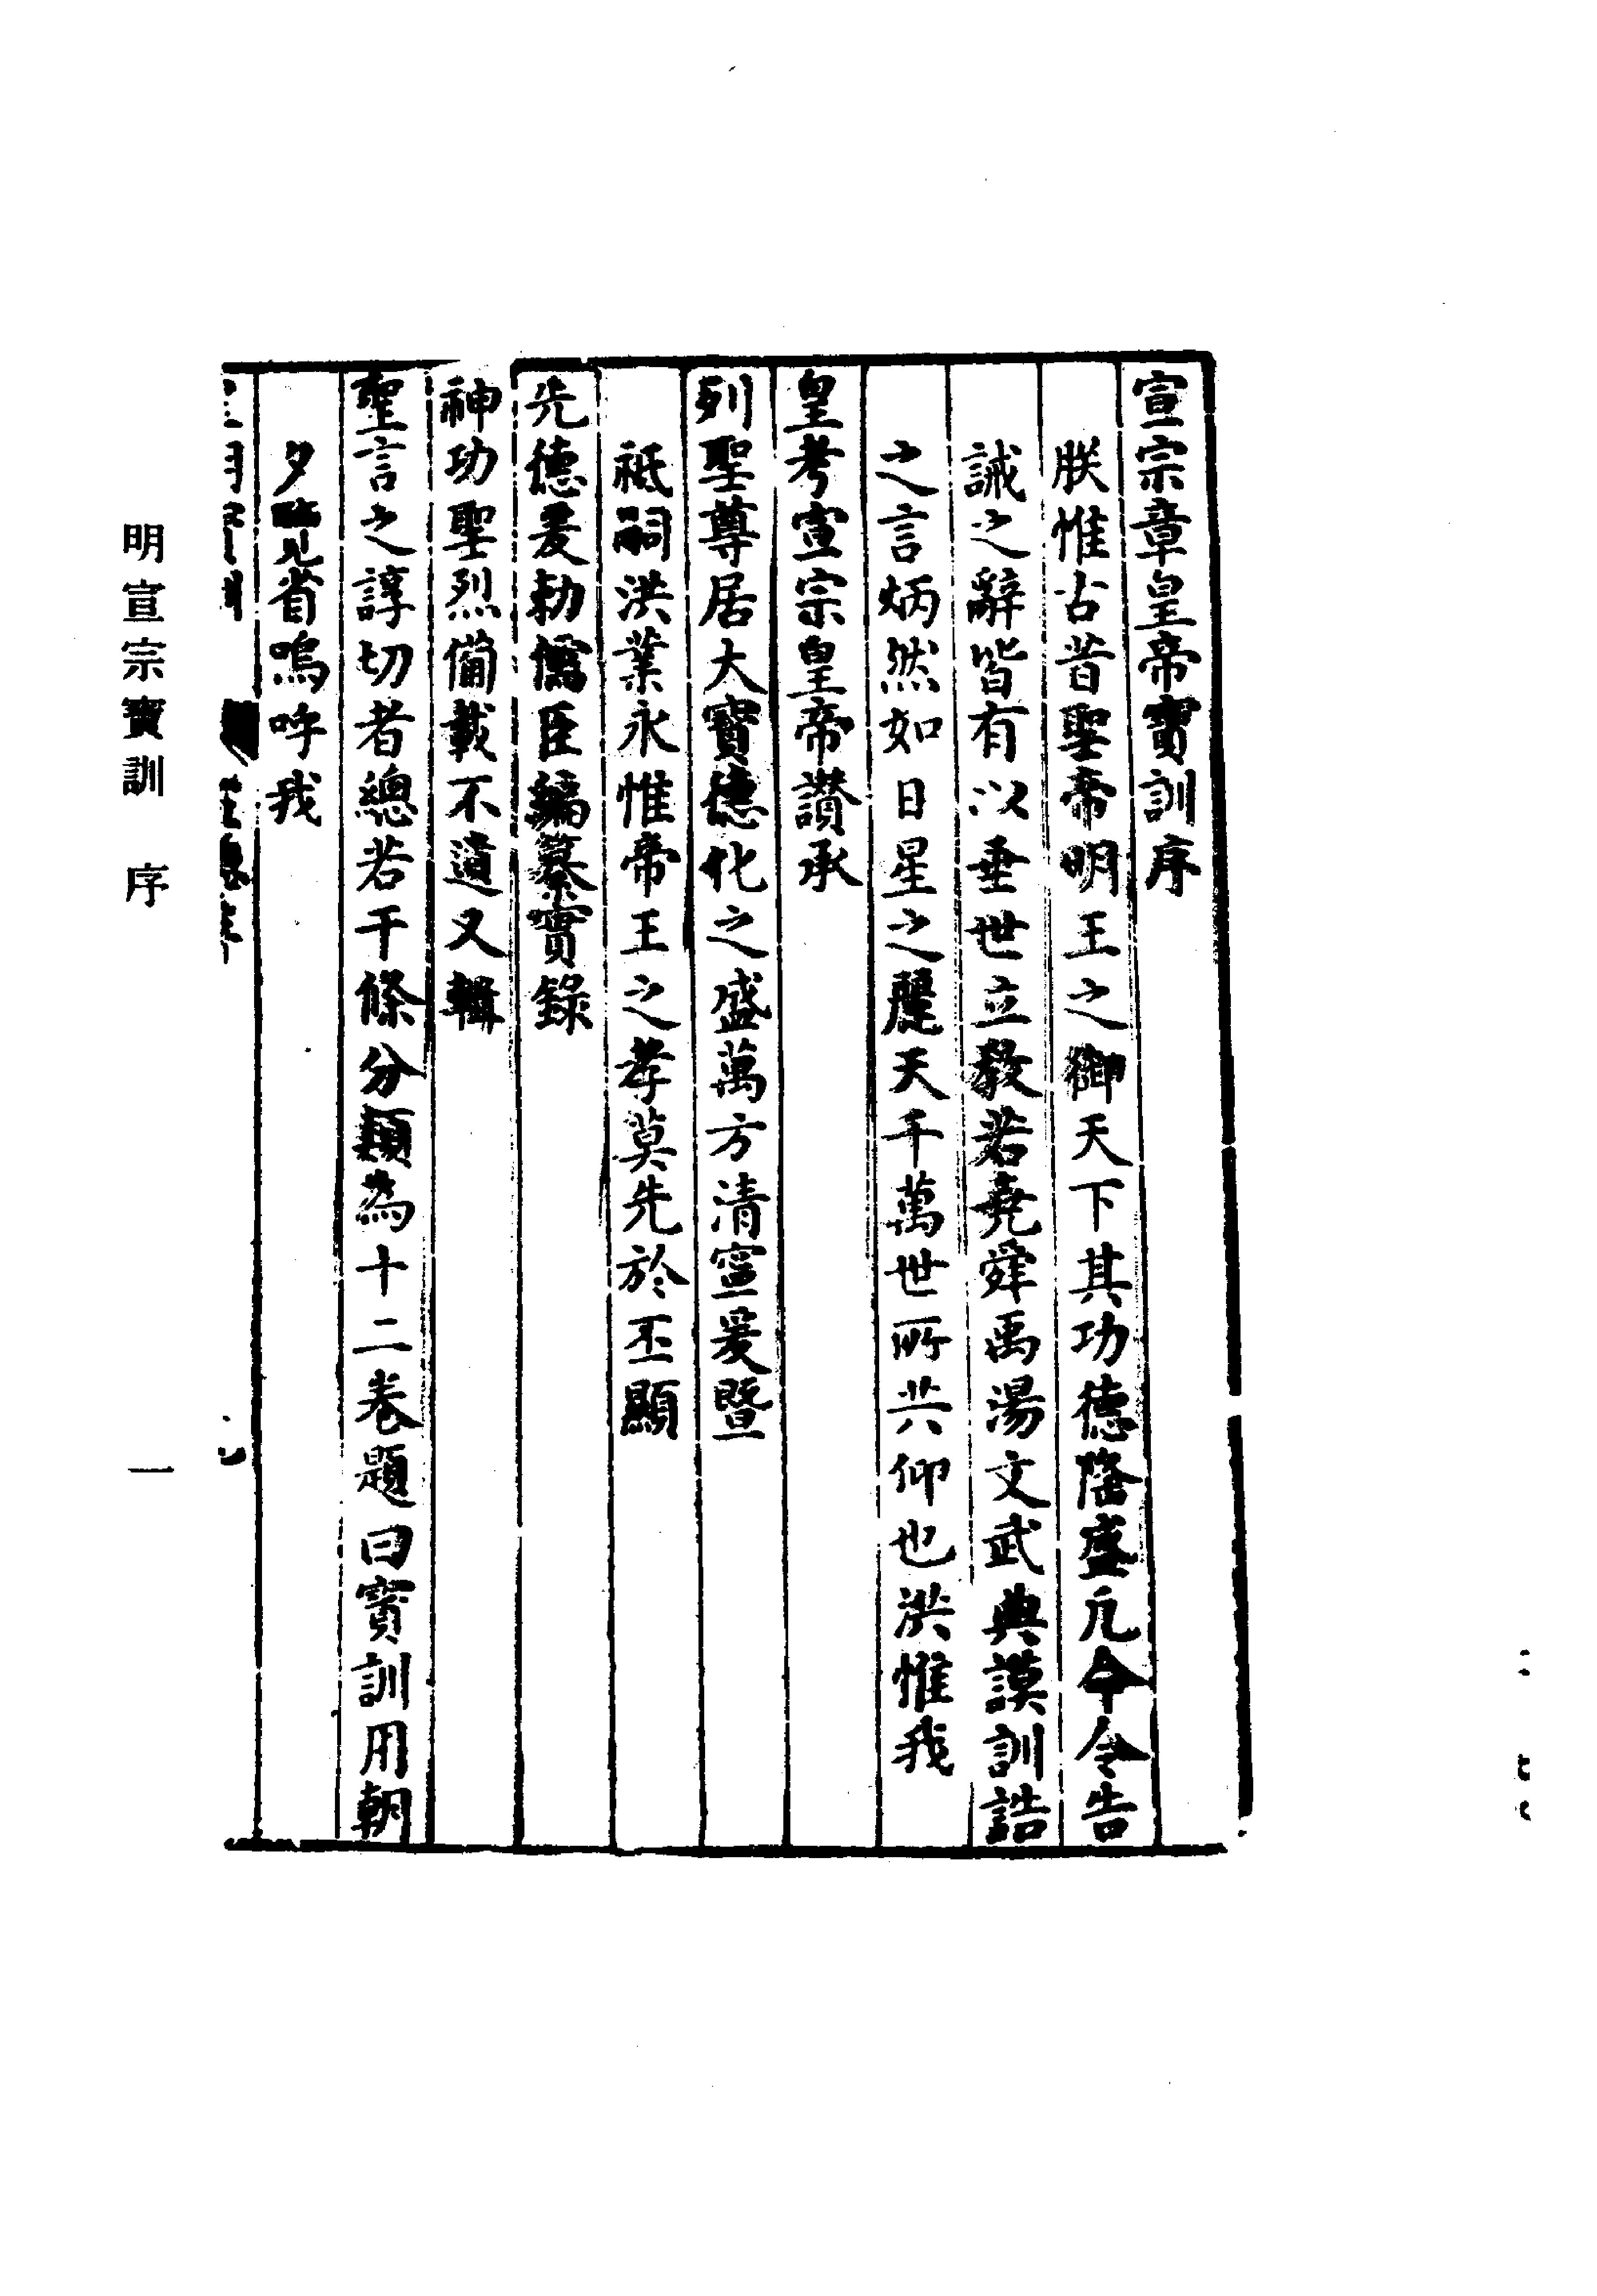 宣宗章皇帝寶訓序
朕惟古昔聖帝明王之御天下其功德隆盛凡命令告
誡之辭皆有以垂世立教若堯舜禹湯文武典謨訓誥
之言炳然如日星之麗天千萬世所共仰也洪惟我
皇考宣宗皇帝讚承
列聖尊居大寶德化之盛萬方清寧爰暨
祗嗣洪業永惟帝王之孝莫先於丕顯
先德爰勑儒臣編纂實錄
神功聖烈備載不遺又輯
聖言之諄切者總若干條分類為十二卷題曰寶訓用朝
夕覽省嗚呼我
明宣宗寶訓 序
一